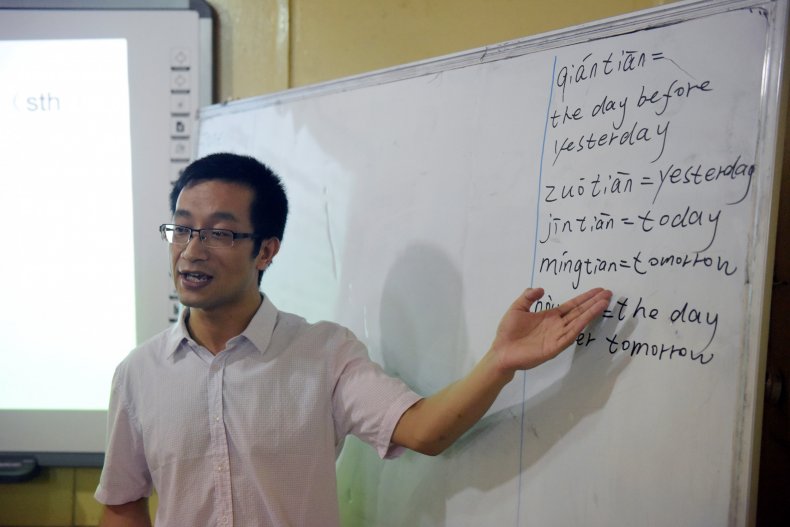 sth
qiántiān=
the day before
yesterday
zuótiān=yesterday
jīntiān=today
míngtiān=tomorrow
=the day
tomorrow